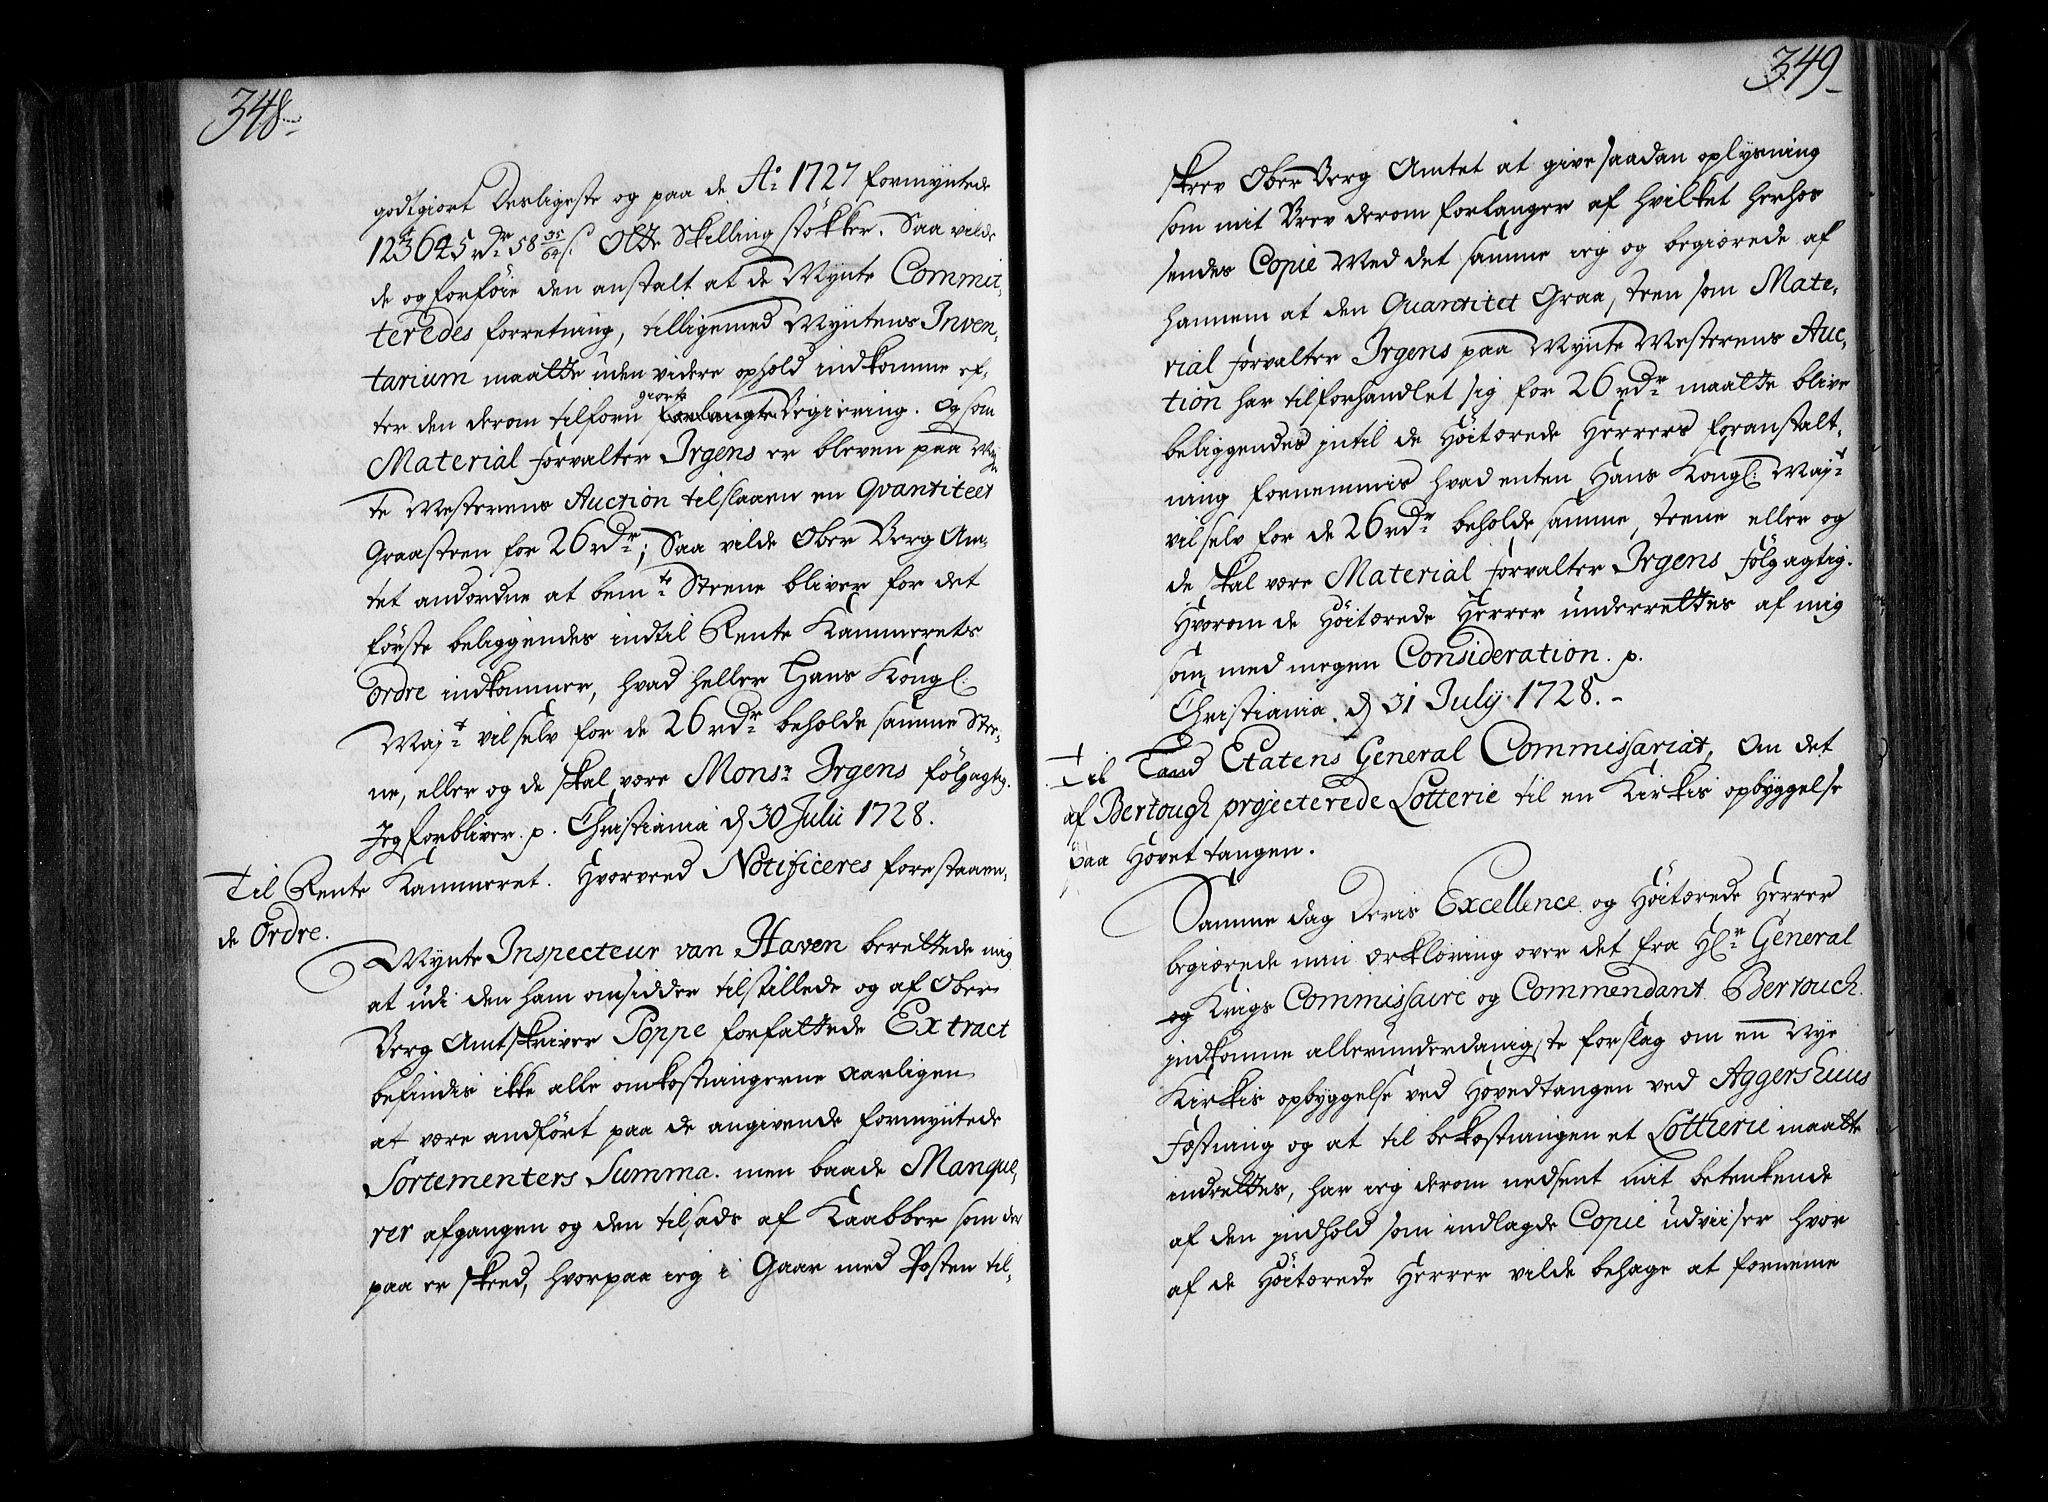 348
godtgiort Desligeste og paa de Ao 1727 formyntede
123645 rdr 58 35/64 s. Otte Skilling støkker. Saa vilde
de og forføie den anstalt at de Mynte Commit-
teredes forretning, tilligemed Myntens Inven-
tarium maatte uden videre ophold indkomme ef-
ter den derom tilforn giorte Begiering. Og som
Material forvalter Irgens er bleven paa Myn-
te Mesterens Auction tilslaaen en Qvantiteet
Graasteen for 26 rdr; Saa vilde Ober Berg Am-
tet andordne at bemte Steene bliver for det
første beliggendes indtil Rente Kammerets
Ordre indkommer, hvad heller Hans Kongl:
Mayt vil selv for de 26 rdr beholde samme Stee-
ne, eller og de skal være Monsr Irgens følgagtig.
Jeg forbliver p. Christiania d 30 Julii 1728.
Til Rente Kammeret. Hvorved Notificeres forestaaen-
de Ordre.
Mynte Inspecteur van Haven berettede mig
at udi den ham omsidder tilstillede og af Ober
Berg Amtskriver Poppe forfattede Extract
befindis ikke alle omkostningerne aarligen
at være andført paa de angivende formyntede
Sortementers Summa. men baade Manque-
rer afgangen og den tilsads af Kaabber som der
paa er skeed, hvorpaa ieg i Gaar med Posten til-
349
skrev Ober Berg Amtet at give saadan oplysning
som mit Brev derom forlanger af hvilket herhos
sendes Copie Med det samme ieg og begiærede af
hannem at den Quantitet Graa, steen som Mate-
rial forvalter Irgens paa Mynte Mesterens Auc-
tion har tilforhandlet sig for 26 rdr maatte blive
beliggendes intil de Høitærede Herrers foranstalt-
ning fornemmis hvad enten Hans Kongl: Mayt
vil selv for de 26 rdr beholde samme, steene eller og
de skal være Material forvalter Irgens følgagtig.
Hvorom de Høitærede Herrer underrettes af mig
som med megen Consideration. p.
Christiania. d 31 July 1728.
Til Land Etatens General Commissariat, Om det
af Bertough projecterede Lotterie til en Kirkis opbyggelse
paa Hovettangen.
Samme dag Deris Excellence og Høitærede Herrer
begiærede min erklæring over det fra Hr General
og Krigs Commissaire og Commendant Bertouch
indkomne allerunderdanigste forslag om en Nye
Kirkis opbyggelse ved Hovedtangen ved Aggershuus
Fæstning og at til bekostningen et Lotterie maatte
indrettes, har ieg derom nedsent mit betenkende
af den indhold som indlagde Copie udviiser hvor
af de Høitærede Herrer vilde behage at forneme